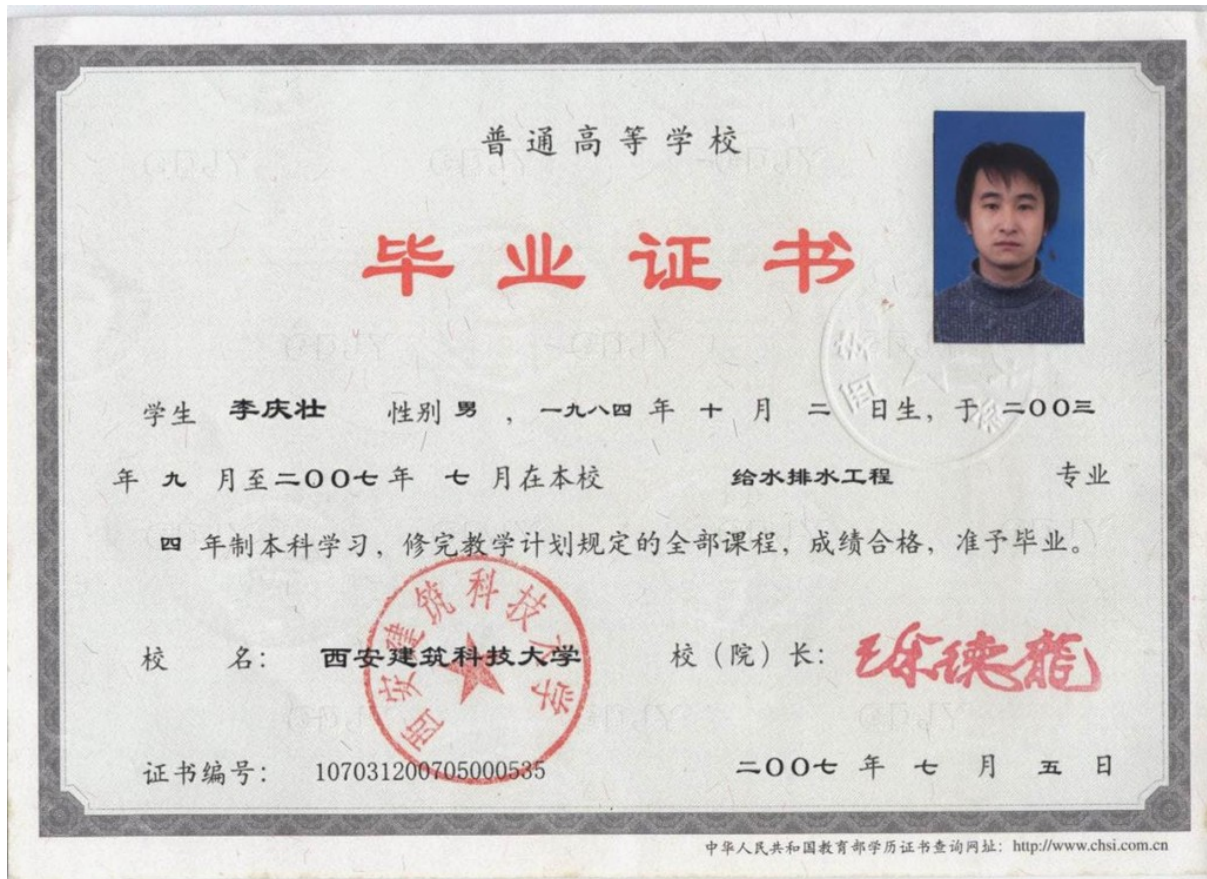 普通高等学校
毕业证书
学生 李庆壮 性别 男 ，一九八四 年 十 月 二 日生，于 二〇〇三
年 九 月至二〇〇七年 七 月在本校 给水排水工程 专业
四 年制本科学习，修完教学计划规定的全部课程，成绩合格，准予毕业。
校 名： 西安建筑科技大学 校（院）长： 徐德龙
西安建筑科技大学
证书编号： 107031200705000535 二〇〇七 年 七 月 五 日
中华人民共和国教育部学历证书查询网址：http://www.chsi.com.cn